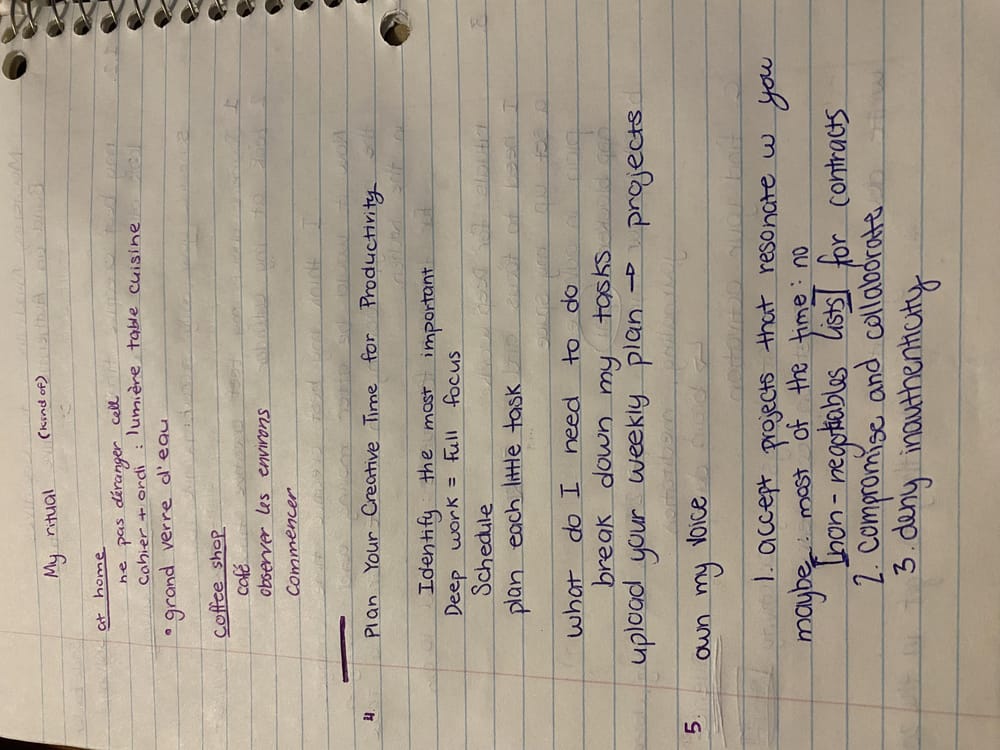 My ritual (kind of)
at home
ne pas déranger cell
cahier + ordi : lumière table cuisine
• grand verre d'eau
coffee shop
café
observer les environs
commencer
4. Plan Your Creative Time for Productivity
Identify the most important
Deep work = full focus
Schedule
plan each little task
what do I need to do
break down my tasks
upload your weekly plan → projects
5. own my voice
1. accept projects that resonate w you
maybe : most of the time : no
[non-negotiables lists] for contracts
2. compromise and collaborate
3. deny inauthenticity